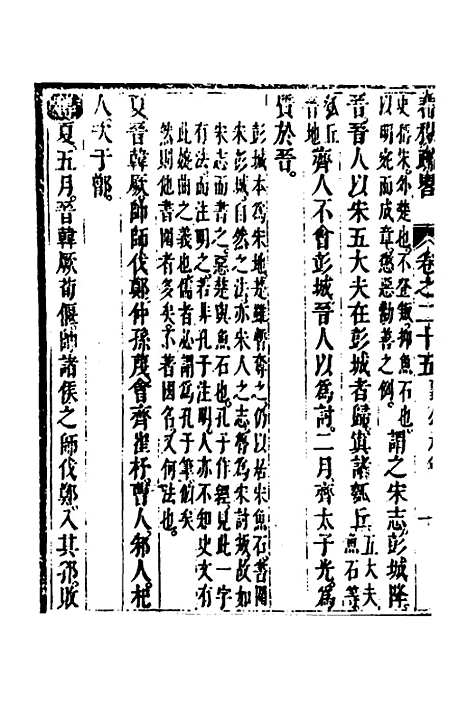 春秋〇畧 卷之二十五 襄公元年 一
史仍宋外楚也不登叛抑魚石也 謂之宋志彭城降
以明宛而成章懲惡勸善之例
晉晉人以宋五大夫在彭城者歸寘諸瓠丘 五大夫魚石等
瓠丘晉地 齊人不會彭城晉人以爲討二月齊太子光爲
質於晉
彭城本爲宋地楚雖暫奪之仍以若宋魚石書圍
宋彭城自然之法亦宋人之志晉爲宋討叛故如
宋志而書之惡楚與魚石也孔子作經見此一字
有法而注明之若非孔子注明人亦不知史文有
此婉曲之義也儒者必謂凡爲孔子筆削矣
然則他書圍者多矣不著國名又何法也
夏晉韓厥帥師伐鄭仲孫蔑會齊崔杼曹人邾人杞
人次于鄫
傳 夏五月晉韓厥荀偃帥諸侯之師伐鄭入其郛敗